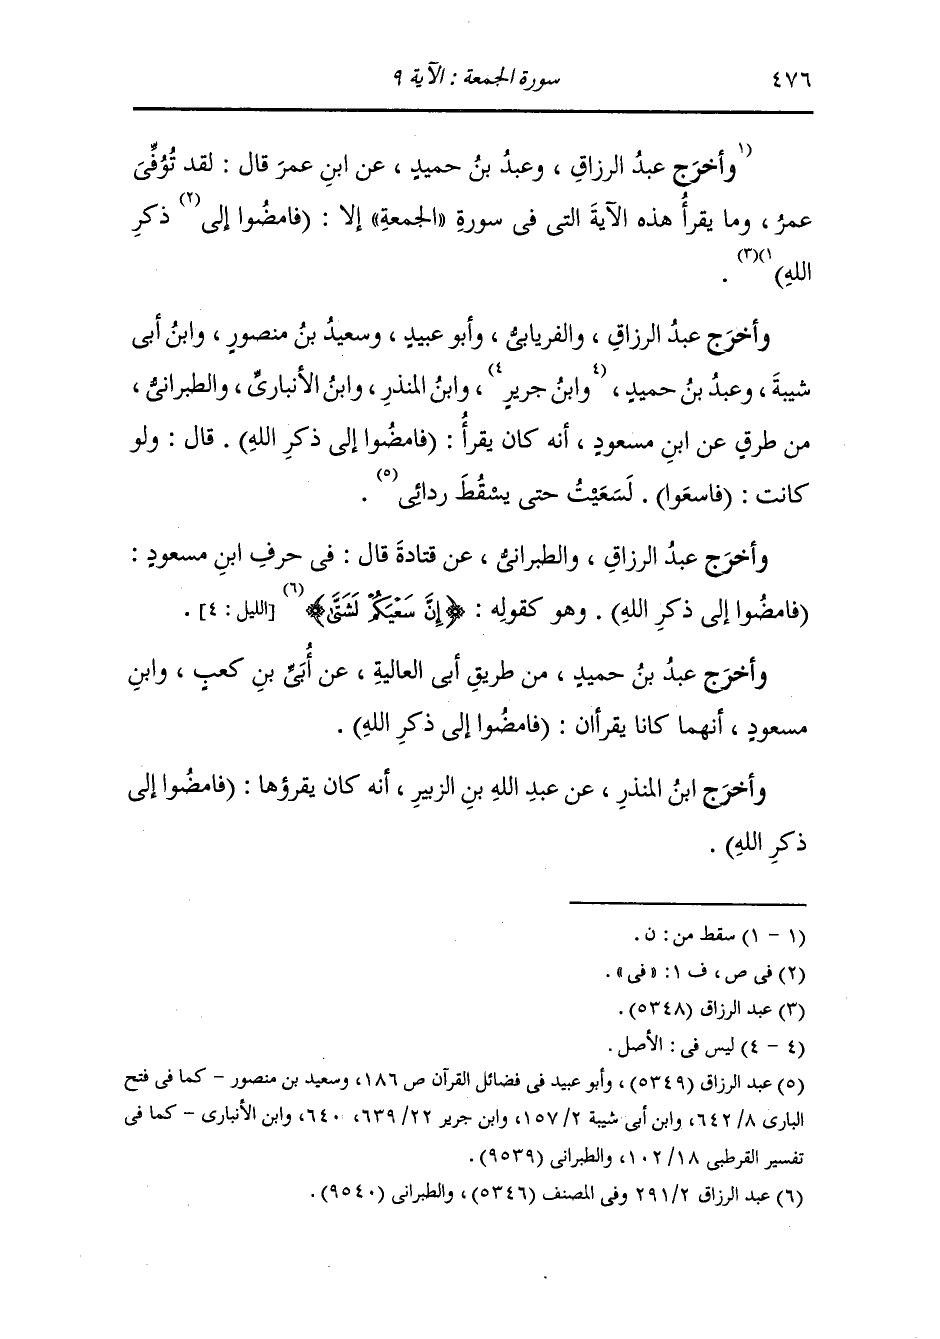 ٤٧٦ سورة الجمعة : الآية ٩
(١وأخرَج عبدُ الرزاقِ ، وعبدُ بنُ حميدٍ ، عن ابنِ عمرَ قال : لقد تُوُفِّىَ
عمرُ ، وما يقرأُ هذه الآيةَ التى فى سورةِ «الجمعةِ» إلا : (فامضُوا إلى(٢) ذكرِ
اللهِ)١)(٣) .
وأخرَج عبدُ الرزاقِ ، والفريابىُّ ، وأبو عبيدٍ ، وسعيدُ بنُ منصورٍ ، وابنُ أبى
شيبةَ ، وعبدُ بنُ حميدٍ ، (٤وابنُ جريرٍ٤) ، وابنُ المنذرِ ، وابنُ الأنبارىِّ ، والطبرانىُّ ،
من طرقٍ عن ابنِ مسعودٍ ، أنه كان يقرأُ : (فامضُوا إلى ذكرِ اللهِ) . قال : ولو
كانت : (فاسعَوا) . لَسَعَيْتُ حتى يسْقُطَ ردائِى(٥) .
وأخرَج عبدُ الرزاقِ ، والطبرانىُّ ، عن قتادةَ قال : فى حرفِ ابنِ مسعودٍ :
(فامضُوا إلى ذكرِ اللهِ) . وهو كقولِه : ﴿إِنَّ سَعْيَكُمْ لَشَتَّىٰ﴾(٦) [الليل : ٤] .
وأخرَج عبدُ بنُ حميدٍ ، من طريقِ أبى العاليةِ ، عن أُبَىِّ بنِ كعبٍ ، وابنِ
مسعودٍ ، أنهما كانا يقرأان : (فامضُوا إلى ذكرِ اللهِ) .
وأخرَج ابنُ المنذرِ ، عن عبدِ اللهِ بنِ الزبيرِ ، أنه كان يقرؤها : (فامضُوا إلى
ذكرِ اللهِ) .
(١ - ١) سقط من : ن .
(٢) فى ص ، ف ١ : «فى» .
(٣) عبد الرزاق (٥٣٤٨) .
(٤ - ٤) ليس فى : الأصل .
(٥) عبد الرزاق (٥٣٤٩) ، وأبو عبيد فى فضائل القرآن ص ١٨٦، وسعيد بن منصور - كما فى فتح
البارى ٨/ ٦٤٢، وابن أبى شيبة ٢/ ١٥٧، وابن جرير ٢٢/ ٦٣٩، ٦٤٠، وابن الأنبارى - كما فى
تفسير القرطبى ١٨/ ١٠٢، والطبرانى (٩٥٣٩) .
(٦) عبد الرزاق ٢/ ٢٩١ وفى المصنف (٥٣٤٦) ، والطبرانى (٩٥٤٠) .